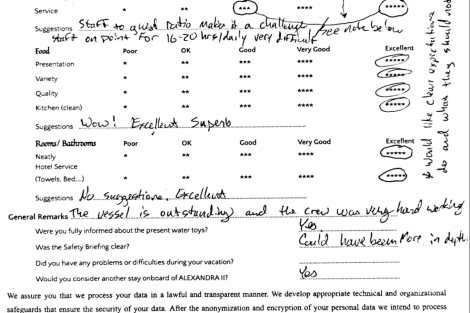 Service * ** *** **** *****
Suggestions Staff to guest Ratio make it a challenge / see note below
staff on point for 16-20 hrs/daily very difficult
Food Poor OK Good Very Good Excellent
Presentation * ** *** **** *****
Variety * ** *** **** *****
Quality * ** *** **** *****
Kitchen (clean) * ** *** **** *****
Suggestions Wow! Excellent Superb
Rooms / Bathrooms Poor OK Good Very Good Excellent
Neatly * ** *** **** *****
Hotel Service
(Towels, Bed...) * ** *** **** *****
Suggestions No suggestions. Excellent
General Remarks The vessel is outstanding and the crew was very hard working
Were you fully informed about the present water toys? Yes
Was the Safety Briefing clear? Could have been more in dpth.
Did you have any problems or difficulties during your vacation?
Would you consider another stay onboard of ALEXANDRA II? Yes
We assure you that we process your data in a lawful and transparent manner. We develop appropriate technical and organizational
safeguards that ensure the security of your data. After the anonymization and encryption of your personal data we intend to process
* Would like clear expectations
do and when they should not